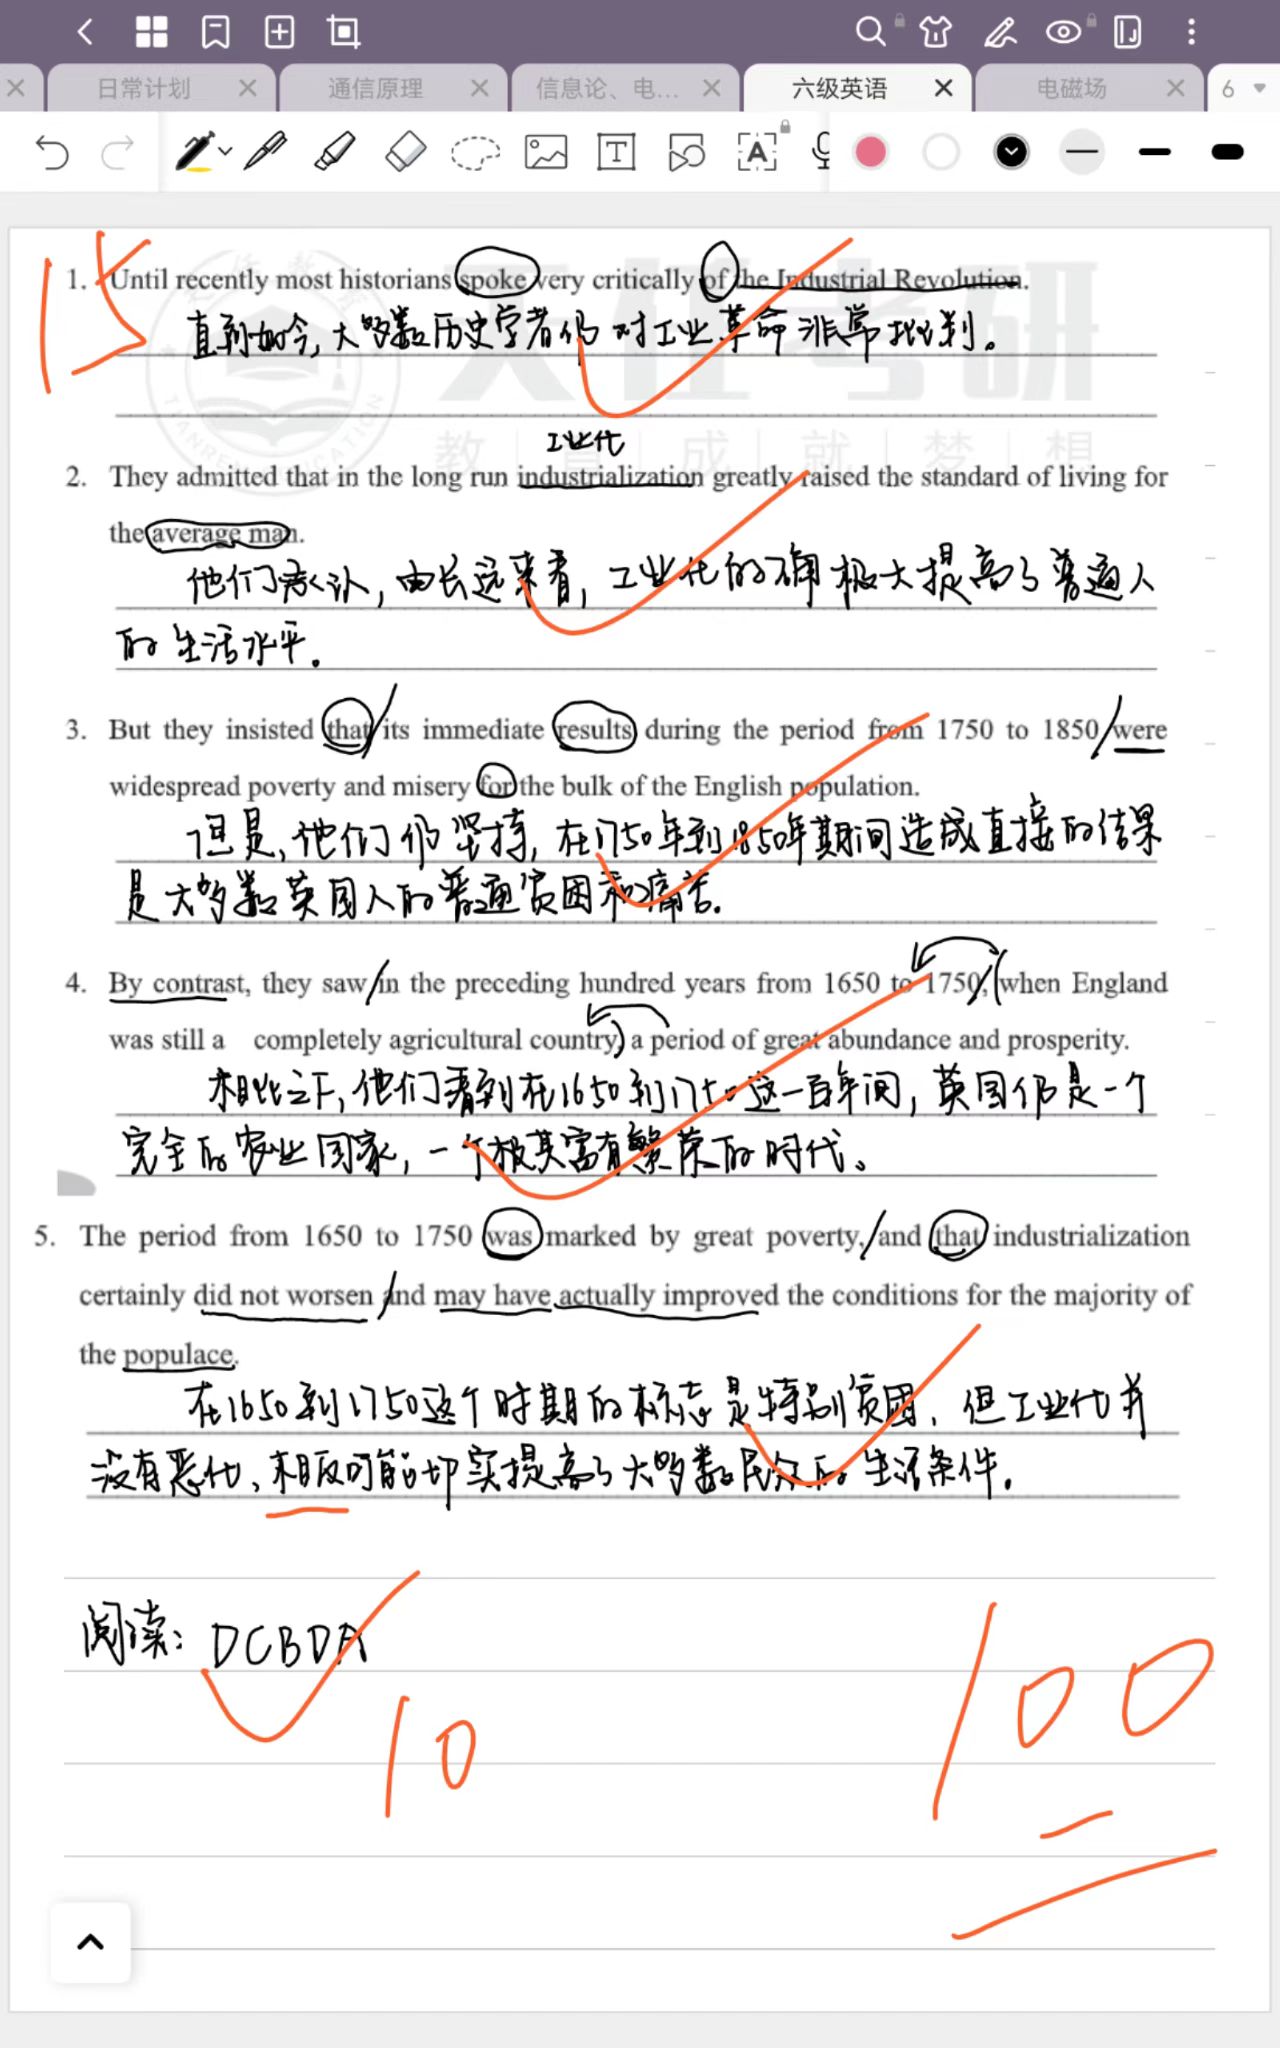 日常计划 通信原理 信息论、电... 六级英语 电磁场 6
15
天任考研
教育成就梦想
TIANREN EDUCATION
1. Until recently most historians spoke very critically of the Industrial Revolution.
直到如今,大多数历史学者仍对工业革命非常批判。
工业化
2. They admitted that in the long run industrialization greatly raised the standard of living for
the average man.
他们承认,由长远来看,工业化的确极大提高了普通人
的生活水平。
3. But they insisted that its immediate results during the period from 1750 to 1850 were
widespread poverty and misery for the bulk of the English population.
但是,他们仍坚持,在1750年到1850年期间造成直接的结果
是大多数英国人的普遍贫困和痛苦。
4. By contrast, they saw in the preceding hundred years from 1650 to 1750, when England
was still a completely agricultural country, a period of great abundance and prosperity.
相比之下,他们看到在1650到1750这一百年间,英国仍是一个
完全的农业国家,一个极其富有繁荣的时代。
5. The period from 1650 to 1750 was marked by great poverty, and that industrialization
certainly did not worsen and may have actually improved the conditions for the majority of
the populace.
在1650到1750这个时期的标志是特别贫困,但工业化并
没有恶化,相反可能切实提高了大多数民众的生活条件。
阅读: DCBDA
10
100